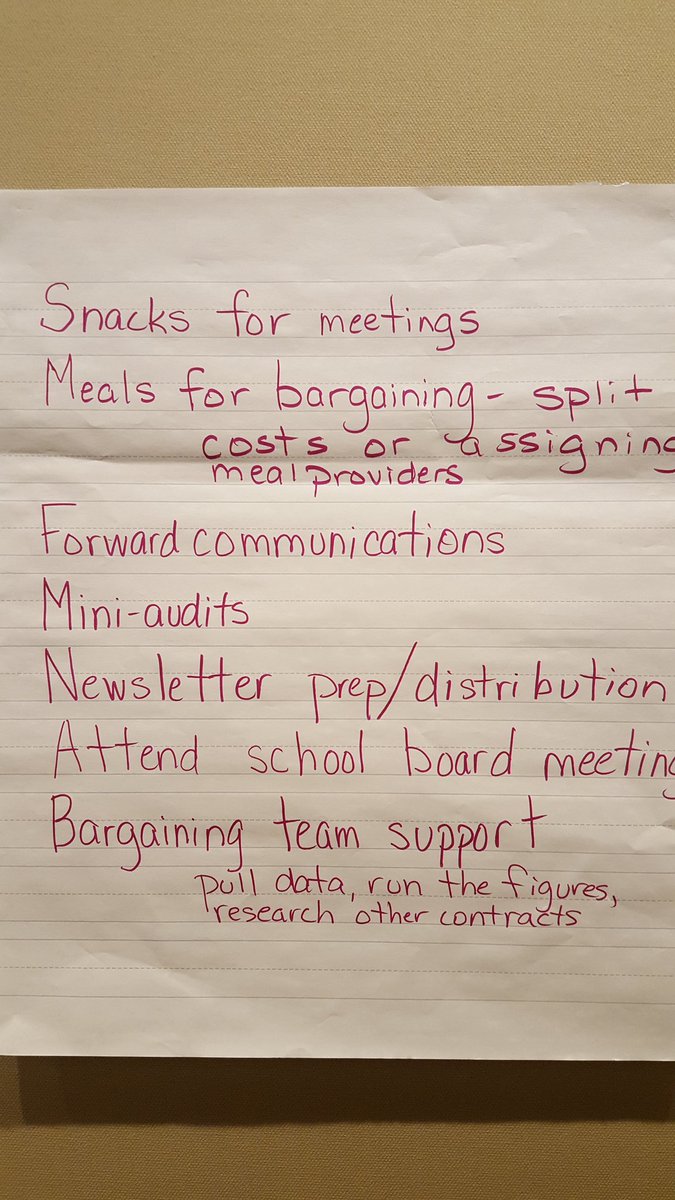 Snacks for meetings
Meals for bargaining - split
costs or assigning
meal providers
Forward communications
Mini-audits
Newsletter prep/distribution
Attend school board meeting
Bargaining team support
pull data, run the figures,
research other contracts